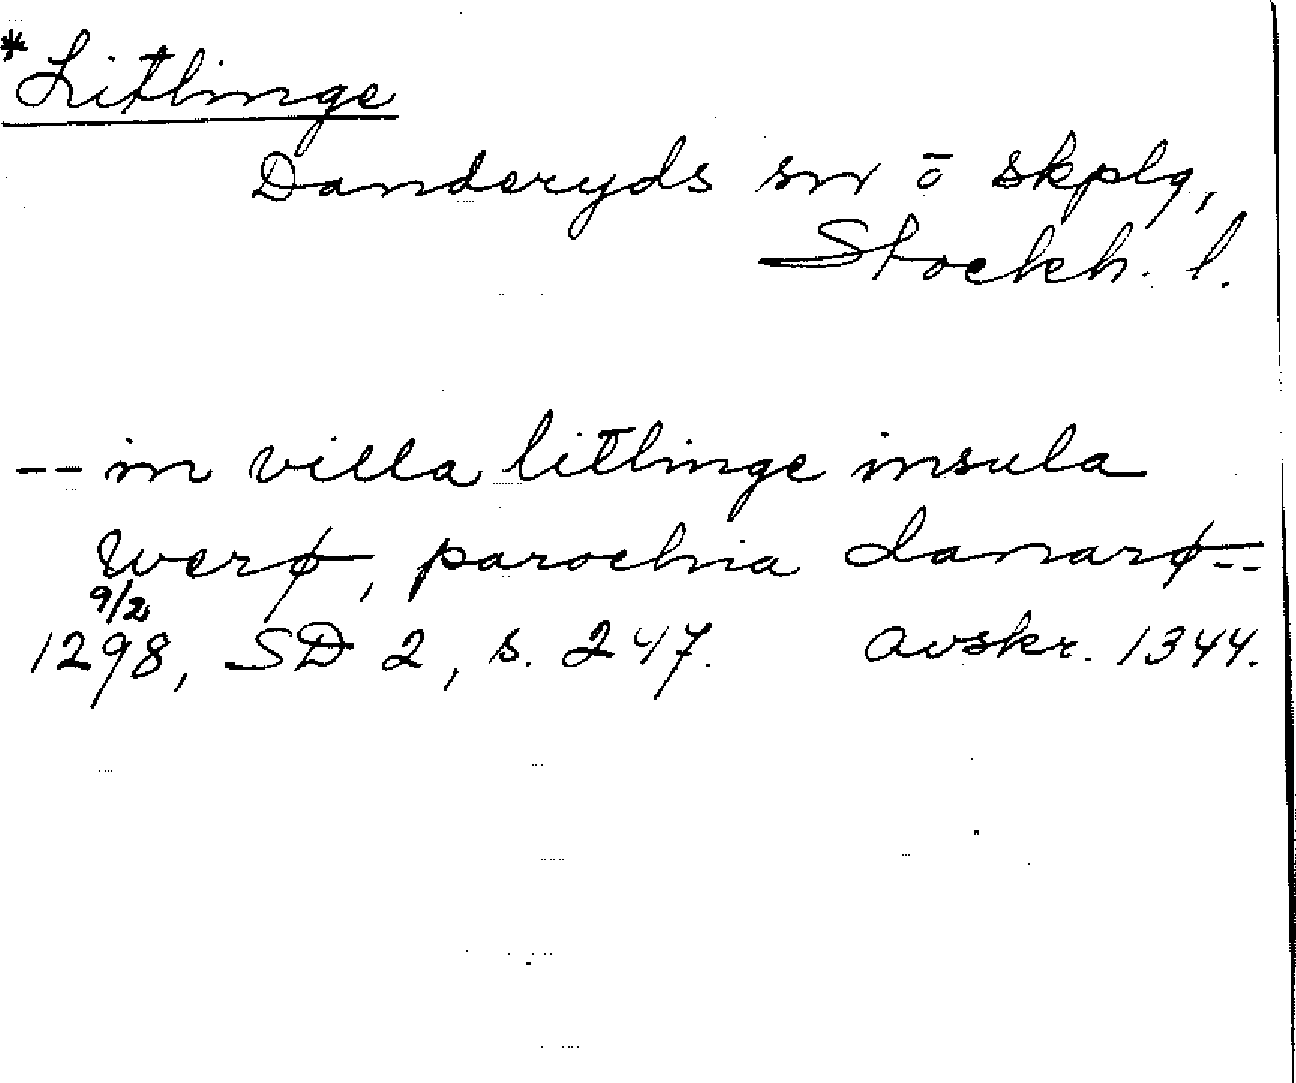 *Litlinge
Danderyds sn o skplg,
Stockh. l.
-- in villa litlinge insula
Werø, parochia danarø --
9/2
1298, SD 2, s. 247. Avskr. 1344.